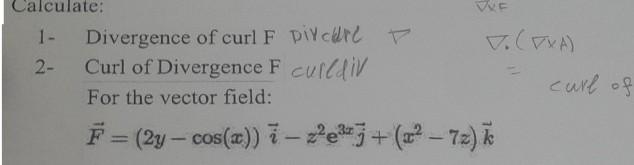 Calculate:
∇×F
1- Divergence of curl F Divcurl ∇
∇.(∇×A)
2- Curl of Divergence F curldiv
=
curl of
For the vector field:
F⃗ = (2y – cos(x)) i⃗ – z²e³ˣj⃗ + (x² – 7z) k⃗